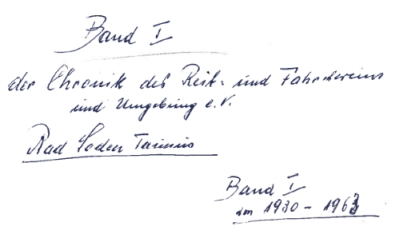 Band I
der Chronik des Reit- und Fahrvereins
und Umgebung e.V.
Bad Soden Taunus
Band I
von 1930 - 1963